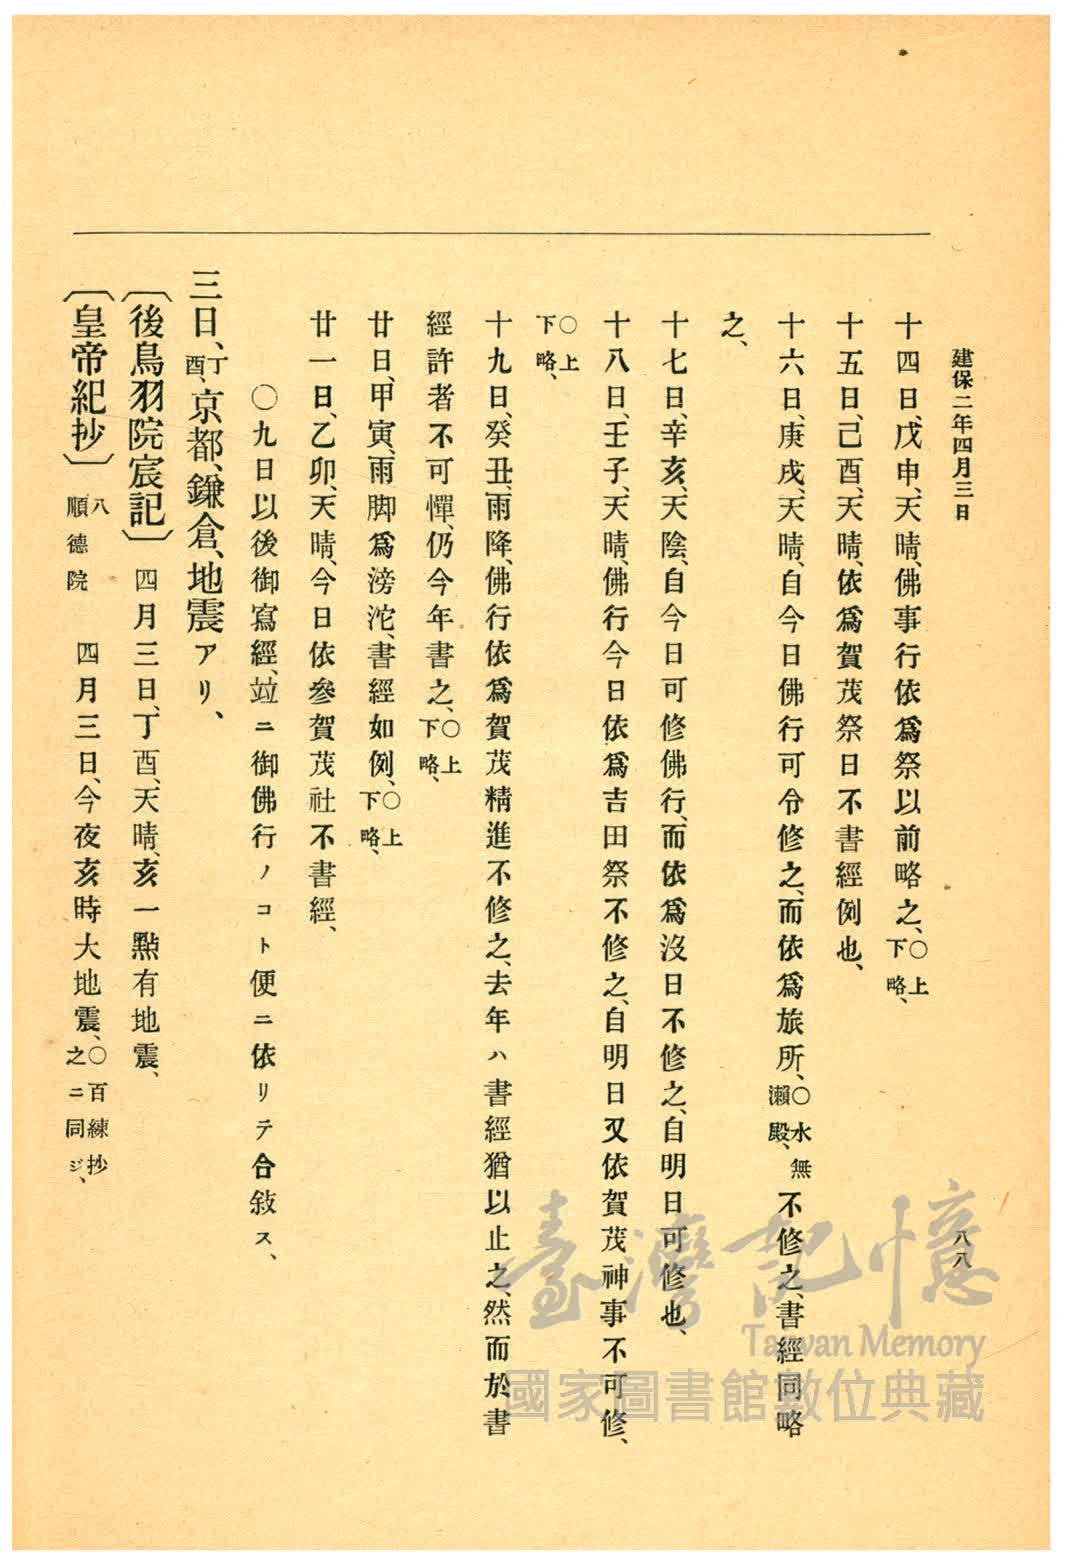 建保二年四月三日
八八
十四日、戊申、天晴、佛事行依爲祭以前略之、〇上下略、
十五日、己酉、天晴、依爲賀茂祭日不書經例也、
十六日、庚戌、天晴、自今日佛行可令修之、而依爲旅所、〇水無瀨殿、不修之、書經同略
之、
十七日、辛亥、天陰、自今日可修佛行、而依爲沒日不修之、自明日可修也、
十八日、壬子、天晴、佛行今日依爲吉田祭不修之、自明日又依賀茂神事不可修、
〇上下略、
十九日、癸丑、雨降、佛行依爲賀茂精進不修之、去年ハ書經猶以止之、然而於書
經許者不可憚、仍今年書之、〇上下略、
廿日、甲寅、雨脚爲滂沱、書經如例、〇上下略、
廿一日、乙卯、天晴、今日依參賀茂社不書經、
〇九日以後御寫經、竝ニ御佛行ノコト便ニ依リテ合敍ス、
三日、丁酉、京都、鎌倉、地震アリ、
〔後鳥羽院宸記〕四月三日、丁酉、天晴、亥一點有地震、
〔皇帝紀抄〕八順德院 四月三日、今夜亥時大地震、〇百練抄之ニ同ジ、
臺灣記憶
Taiwan Memory
國家圖書館數位典藏